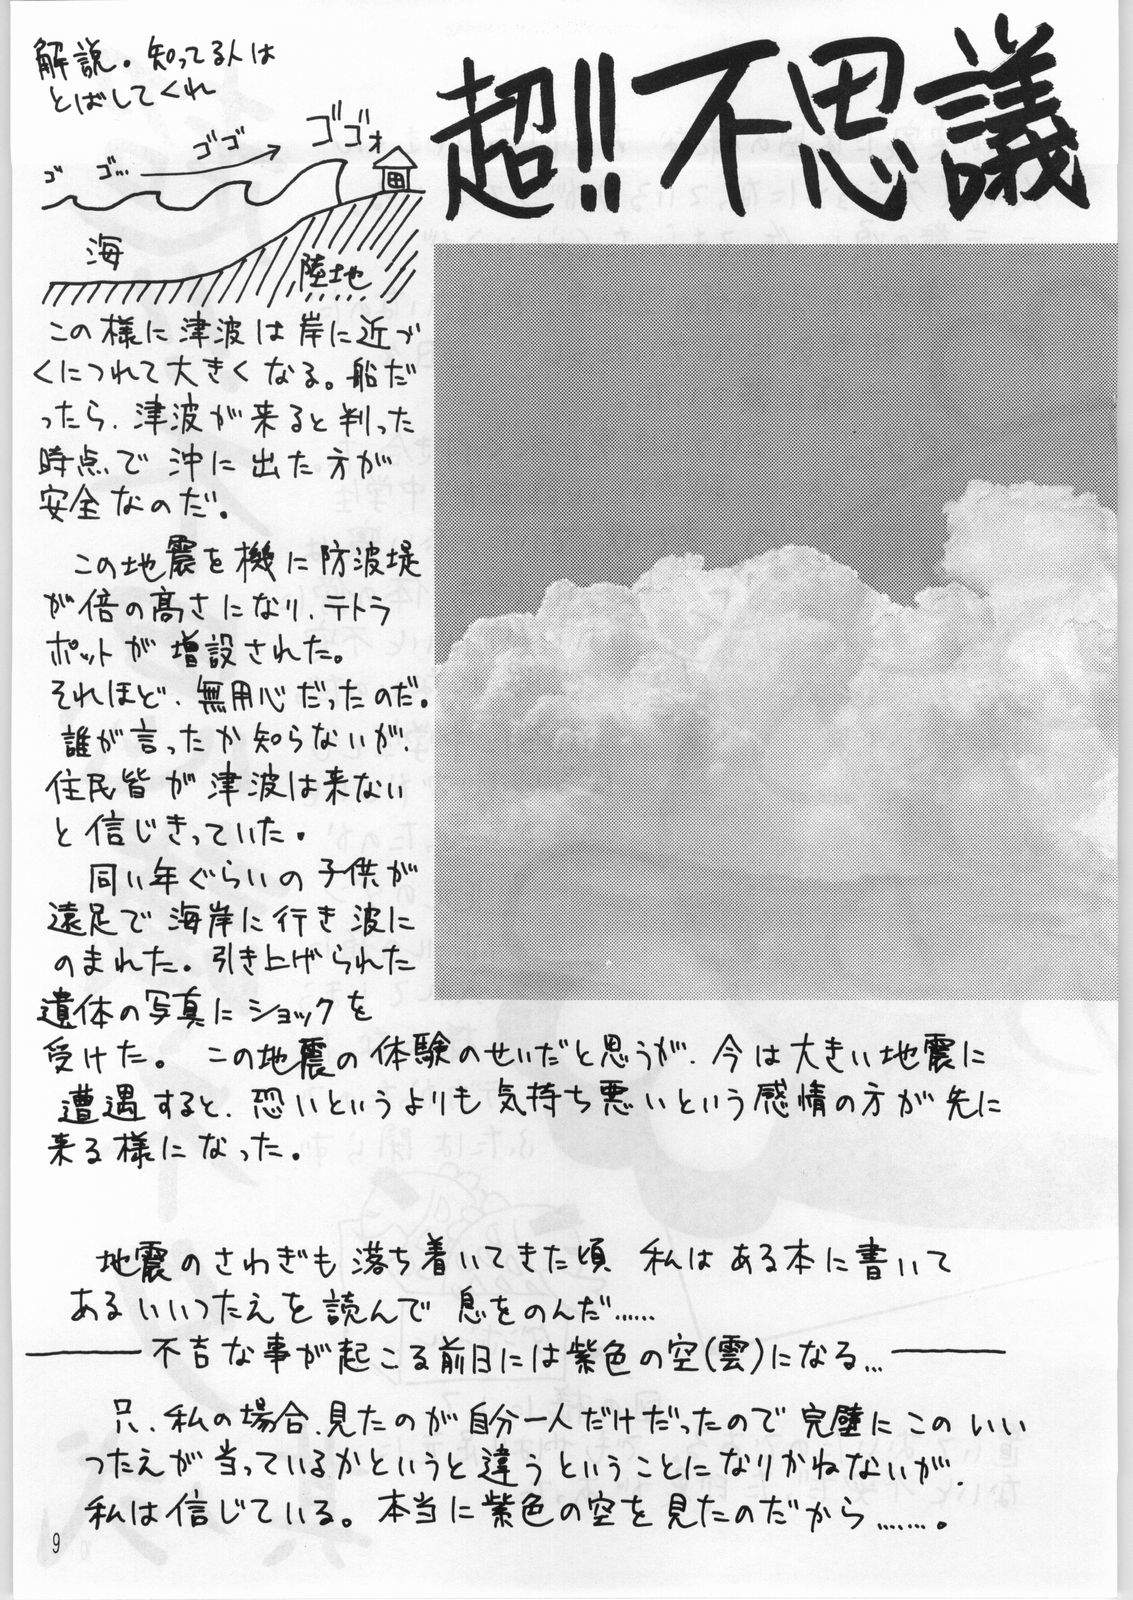 超!!不思議
解説。知ってる人は
とばしてくれ
ゴ ゴ… ゴゴ ゴゴォ
海
陸地
この様に津波は岸に近づ
くにつれて大きくなる。船だ
ったら、津波が来ると判った
時点で沖に出た方が
安全なのだ。
この地震を機に防波堤
が倍の高さになり、テトラ
ポットが増設された。
それほど、無用心だったのだ。
誰が言ったか知らないが、
住民皆が津波は来ない
と信じきっていた。
同い年ぐらいの子供が
遠足で海岸に行き波に
のまれた。引き上げられた
遺体の写真にショックを
受けた。この地震の体験のせいだと思うが、今は大きい地震に
遭遇すると、恐いというよりも気持ち悪いという感情の方が先に
来る様になった。
地震のさわぎも落ち着いてきた頃 私はある本に書いて
あるいいつたえを読んで 息をのんだ……
――不吉な事が起こる前日には紫色の空(雲)になる…――
只、私の場合、見たのが自分一人だけだったので完璧にこのいい
つたえが当っているかというと違うということになりかねないが、
私は信じている。本当に紫色の空を見たのだから……。
9